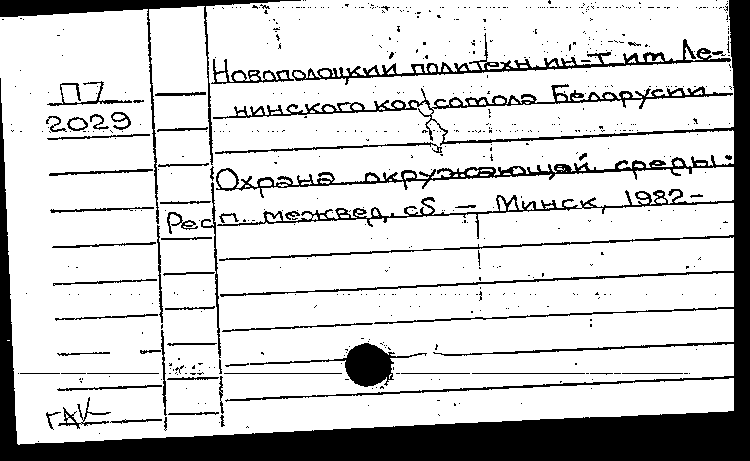 Новополоцкий политехн. ин-т им. Ле-
нинского комсомола Белорусии
П7
2029
Охрана окружающей среды:
Респ. межвед. сб. — Минск, 1982-